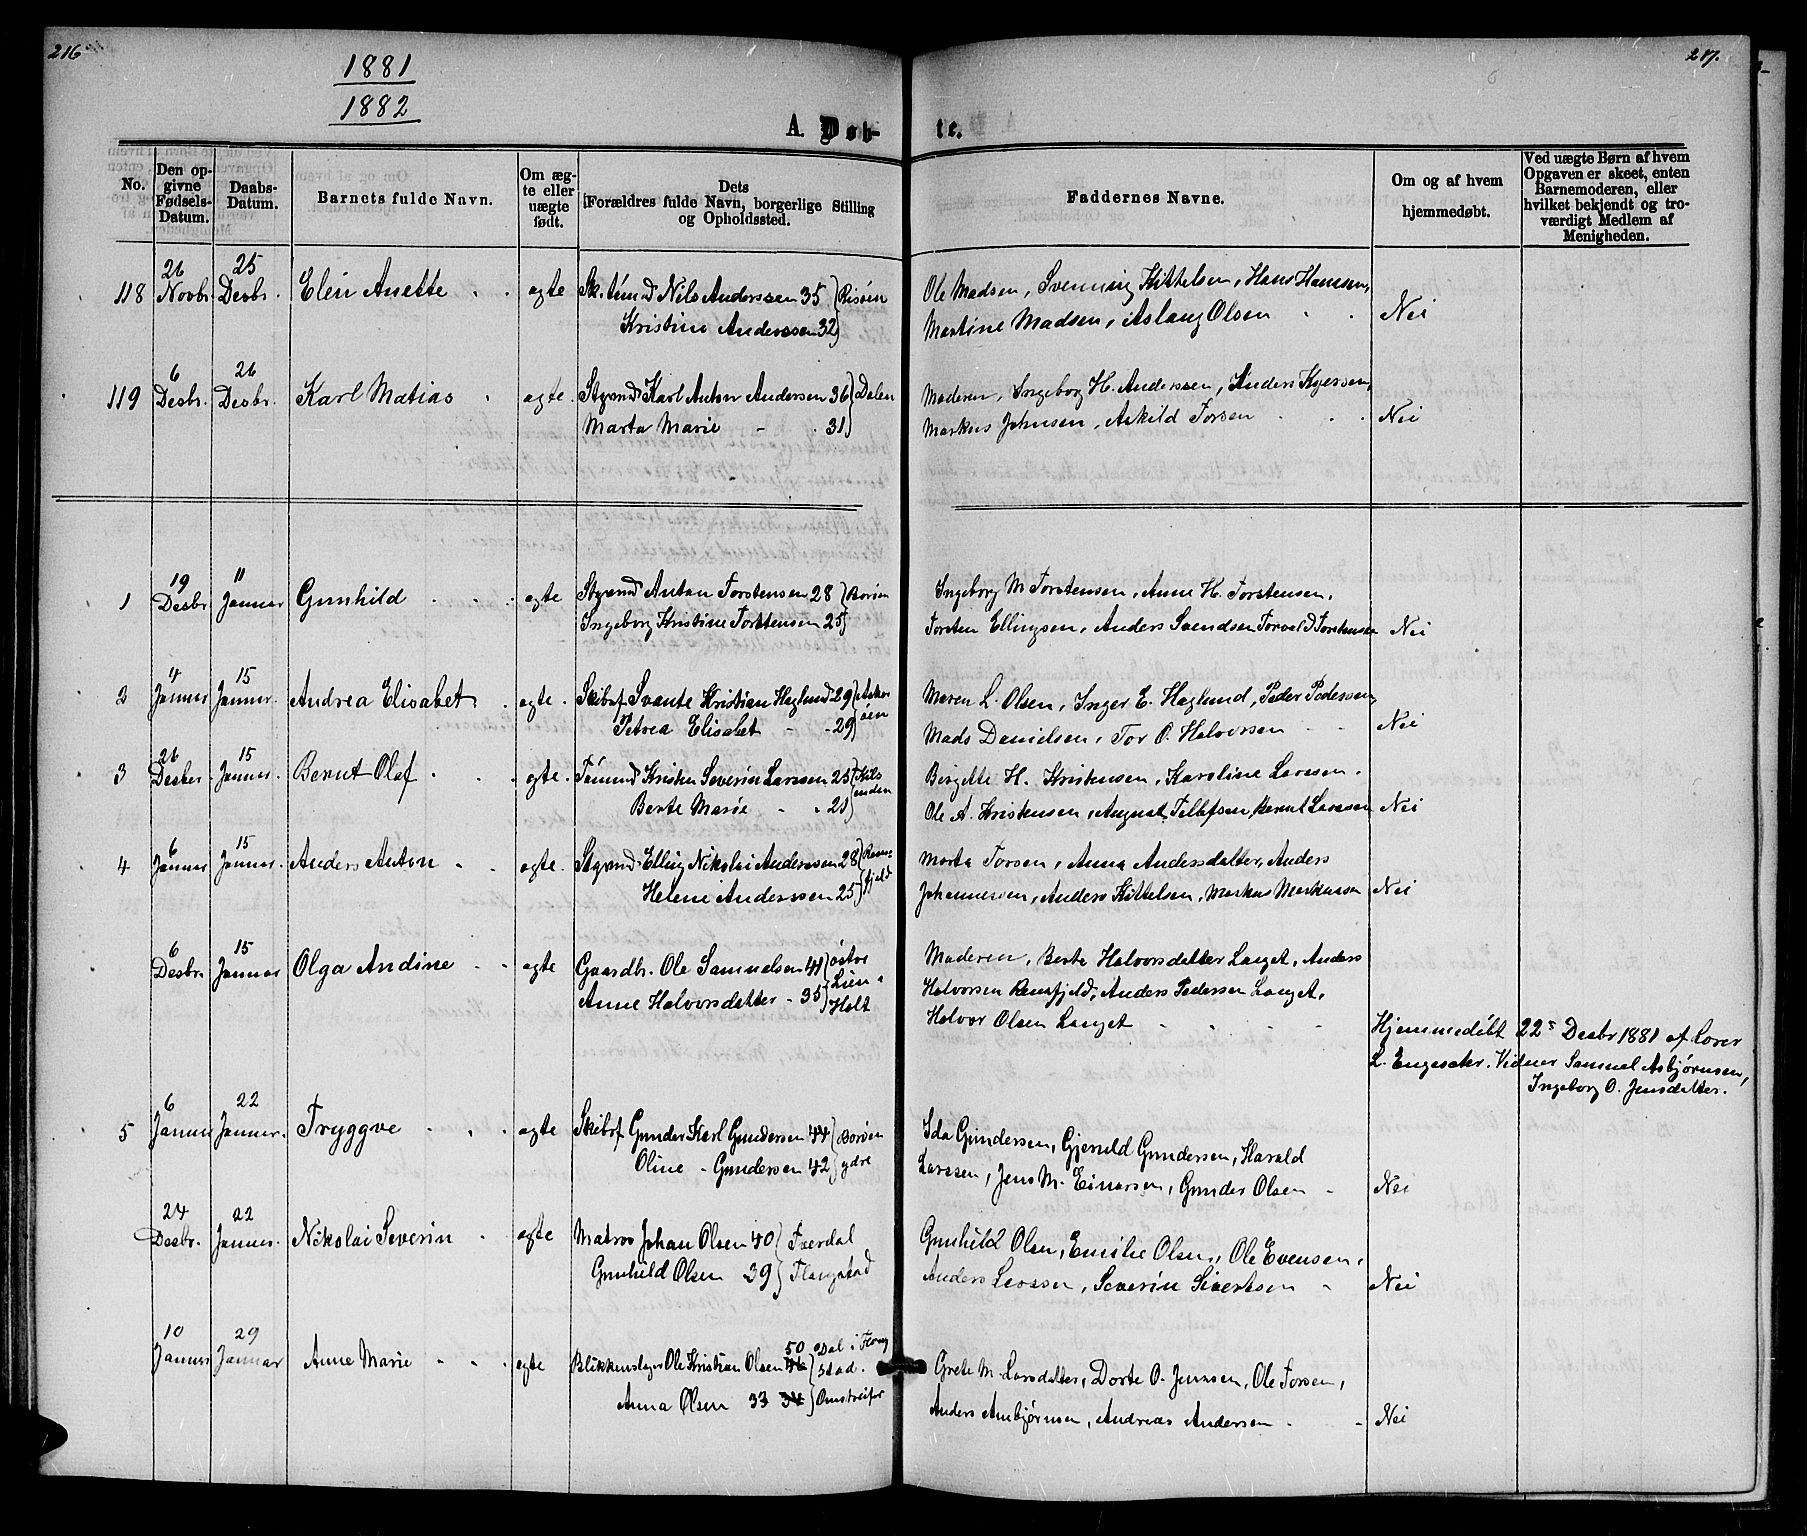 216
217.
1881
1882
A. Døb-
te.
No.
Den op-
givne
Fødsels-
Datum.
Daabs-
Datum.
Barnets fulde Navn.
Om æg-
te eller
uægte
født.
Dets
(Forældres fulde Navn, borgerlige Stilling
og Opholdssted.
Faddernes Navne.
Om og af hvem
hjemmedøbt.
Ved uægte Børn af hvem
Opgaven er skeet, enten
Barnemoderen, eller
hvilket bekjendt og tro-
værdigt Medlem af
Menigheden.
118 26 Novbr. 25 Desbr. Elen Anette ægte Nils Anderssen 35 Risøen
Kristine Anderssen 32
Ole Madsen, Svenning Kittelsen, Hans Hanssen,
Martine Madsen, Aslaug Olsen Nei
119 6 Desbr. 26 Desbr. Karl Matias ægte. Styrmd Karl Anton Andersen 36 Dalen
Marta Marie - 31
Moderen, Ingeborg H. Anderssen, Anders
Markus Johnsen, Askild Torsen Nei
1 19 Desbr 11 Januar Gunhild ægte Styrmd Anton Torstensen 28 Borøen
Ingeborg Kristine Torstensen 25
Ingeborg M Torstensen, Anne H. Torstensen,
Torsten Ellingsen, Anders Svendsen, Torvald Torstensen Nei
2 4 Januar 15 Januar. Andrea Elisabet ægte. Skibsf Svante Kristian Haglund 29 Asker-
øen
Petrea Elisabet - 29
Maren L. Olsen, Inger E. Haglund, Peder Pedersen,
Mads Danielsen, Tor O. Halvorsen Nei
3 26 Desber 15 Januar. Bernt Olaf ægte. Tømmd Kristen Severin Larssen 25 Kils
enden
Berte Marie - 21
Birgitte H. Kristensen, Karoline Larssen,
Ole A. Kristensen, August Tellefsen, Bernt Larssen Nei
4 6 Januar 15 Januar. Anders Anton ægte. Styrmd Elling Nikolai Anderssen 28 Rams-
fjeld
Helene Anderssen 25
Marta Torsen, Anna Andersdatter, Anders
Johannessen, Anders Kittelsen, Markus Markussen Nei
6 Desbr. 15 Januar Olga Andine ægte Gaardbr. Ole Samuelsen 41 østre
Lien
Holt
Anne Halvorsdatter - 35
Moderen, Berte Halvorsdatter Langet, Anders
Halvorsen Ramsfjeld, Anders Pedersen Langet,
Halvor Olsen Langet
Hjemmedøbt 22s Desbr 1881 af Lærer
L. Engeseter. Vidner Samuel Asbjørnsen,
Ingeborg O. Jensdatter.
5 6 Januar 22 Januar. Tryggve ægte Skibsf Gunder Karl Gundersen 44 Borøen
ydre
Oline - Gundersen 42
Ida Gundersen, Gjeruld Gundersen, Harald
Larssen, Jens M. Einarsen, Gunder Olsen - Nei
24 Desbr. 22 Januar. Nikolai Severin ægte Matros Johan Olsen 40 Tverdal
Flangstad
Gunhild Olsen 39
Gunhild Olsen, Emilie Olsen, Ole Evensen,
Anders Larssen, Severin Sivertsen - Nei
10 Januar 29 Januar Anne Marie ægte Blikkenslager Ole Kristian Olsen 50 46 Dal i Flang
stad.
Anna Olsen 33 34 Omstreifer
Grete M. Larsdatter, Dorte O. Jenssen, Ole Torsen,
Anders Ambjørnsen, Andreas Andersen - Nei